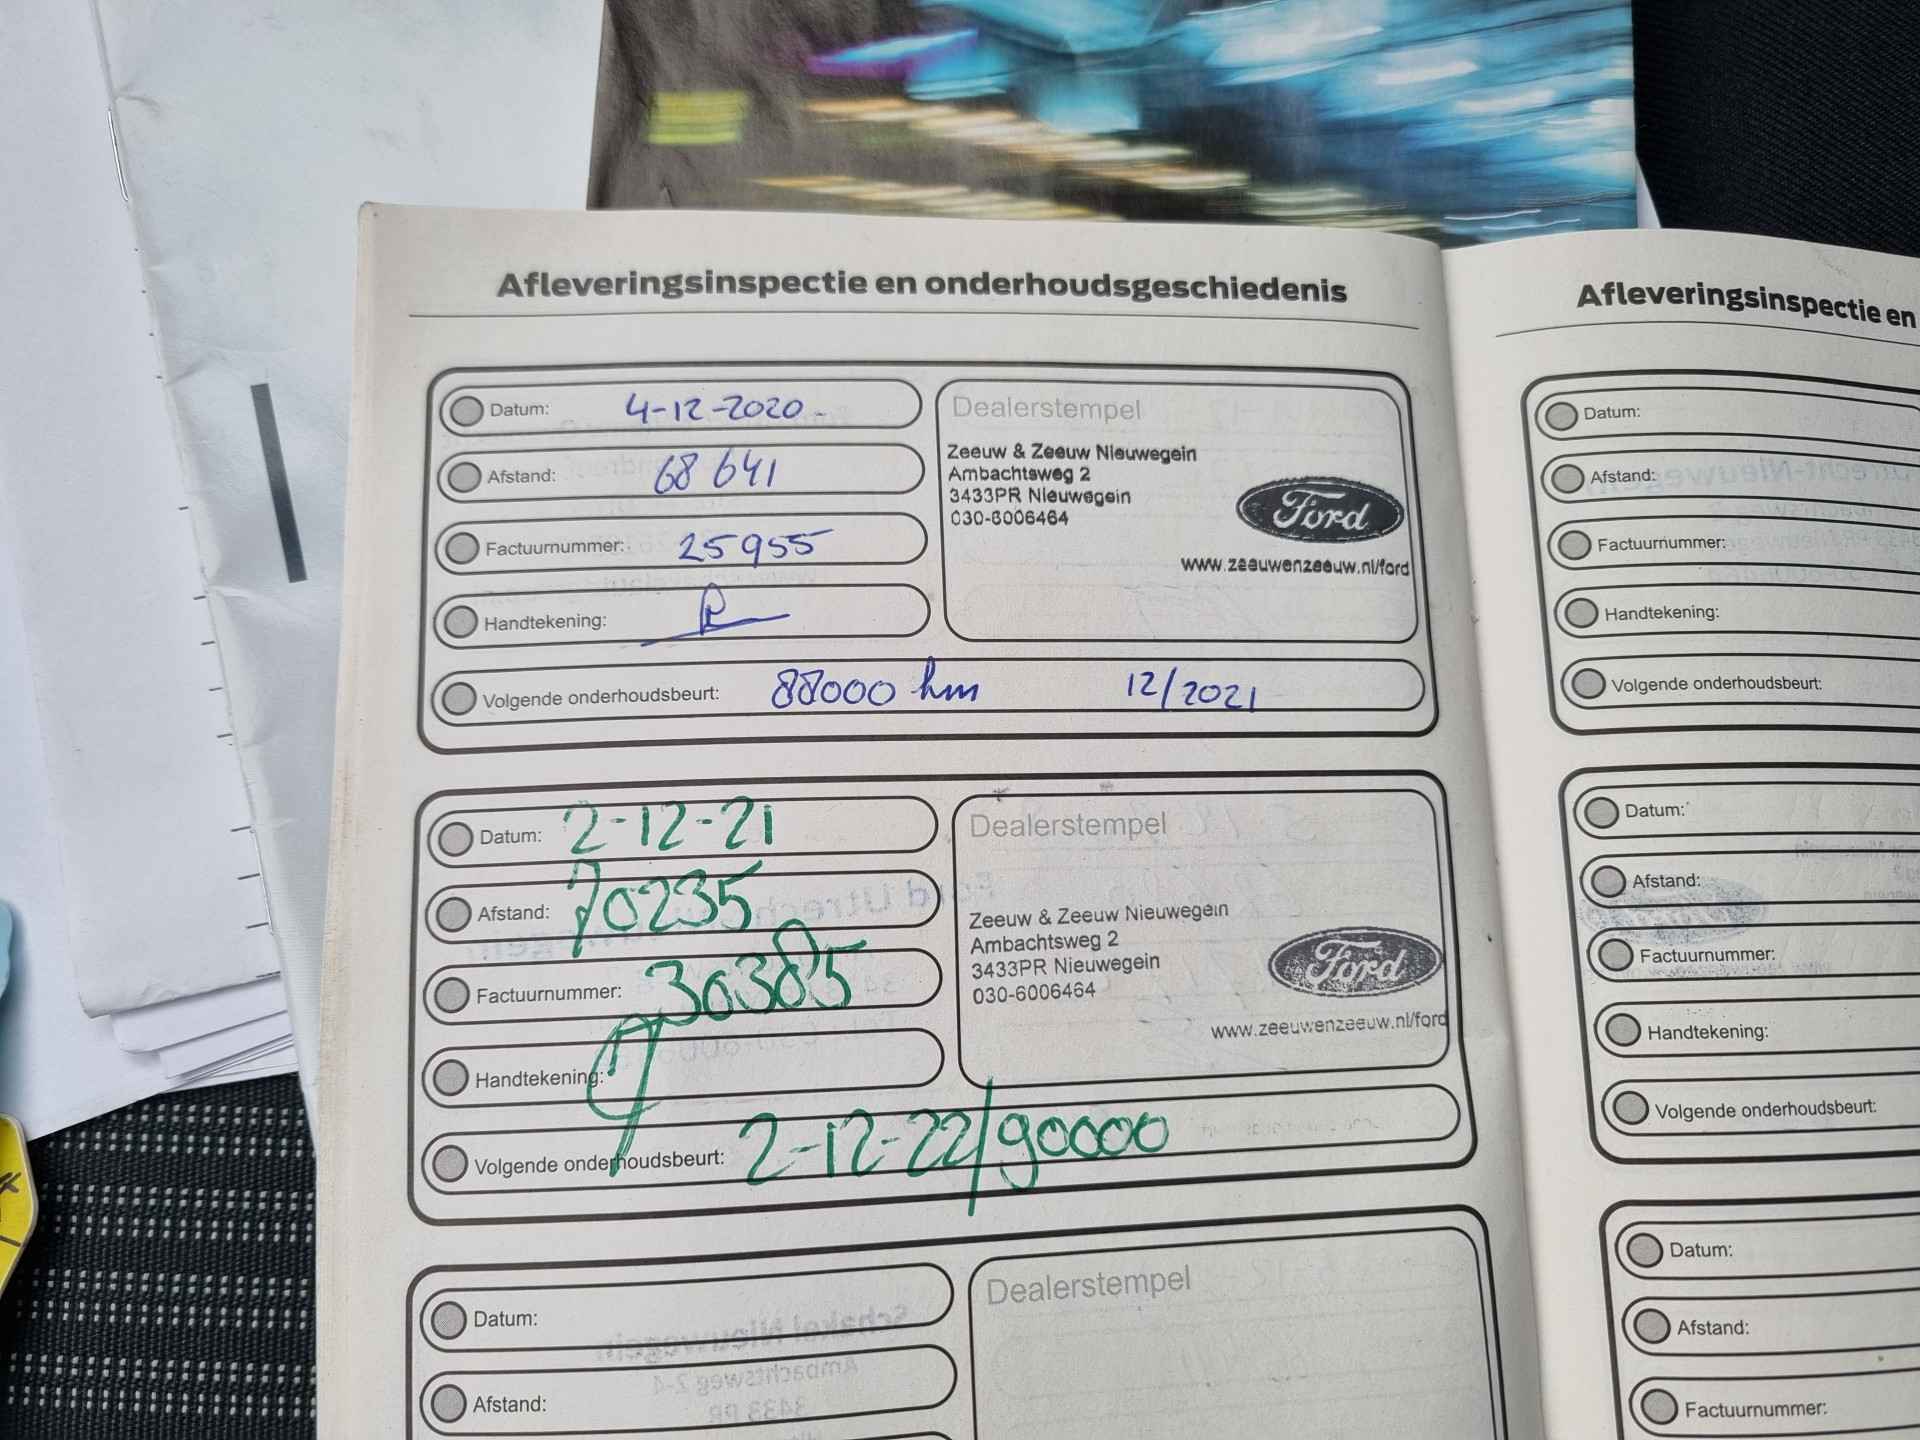 Afleveringsinspectie en onderhoudsgeschiedenis
Datum: 4-12-2020
Afstand: 68 641
Factuurnummer: 25955
Handtekening:
Volgende onderhoudsbeurt: 88000 km 12/2021
Dealerstempel
Zeeuw & Zeeuw Nieuwegein
Ambachtsweg 2
3433PR Nieuwegein
030-6006464
Ford
www.zeeuwenzeeuw.nl/ford
Datum: 2-12-21
Afstand: 70235
Factuurnummer: 30385
Handtekening:
Volgende onderhoudsbeurt: 2-12-22/90000
Dealerstempel
Zeeuw & Zeeuw Nieuwegein
Ambachtsweg 2
3433PR Nieuwegein
030-6006464
Ford
www.zeeuwenzeeuw.nl/ford
Datum:
Afstand:
Dealerstempel
Afleveringsinspectie en
Datum:
Afstand:
Factuurnummer:
Handtekening:
Volgende onderhoudsbeurt:
Datum:
Afstand:
Factuurnummer:
Handtekening:
Volgende onderhoudsbeurt:
Datum:
Afstand:
Factuurnummer: